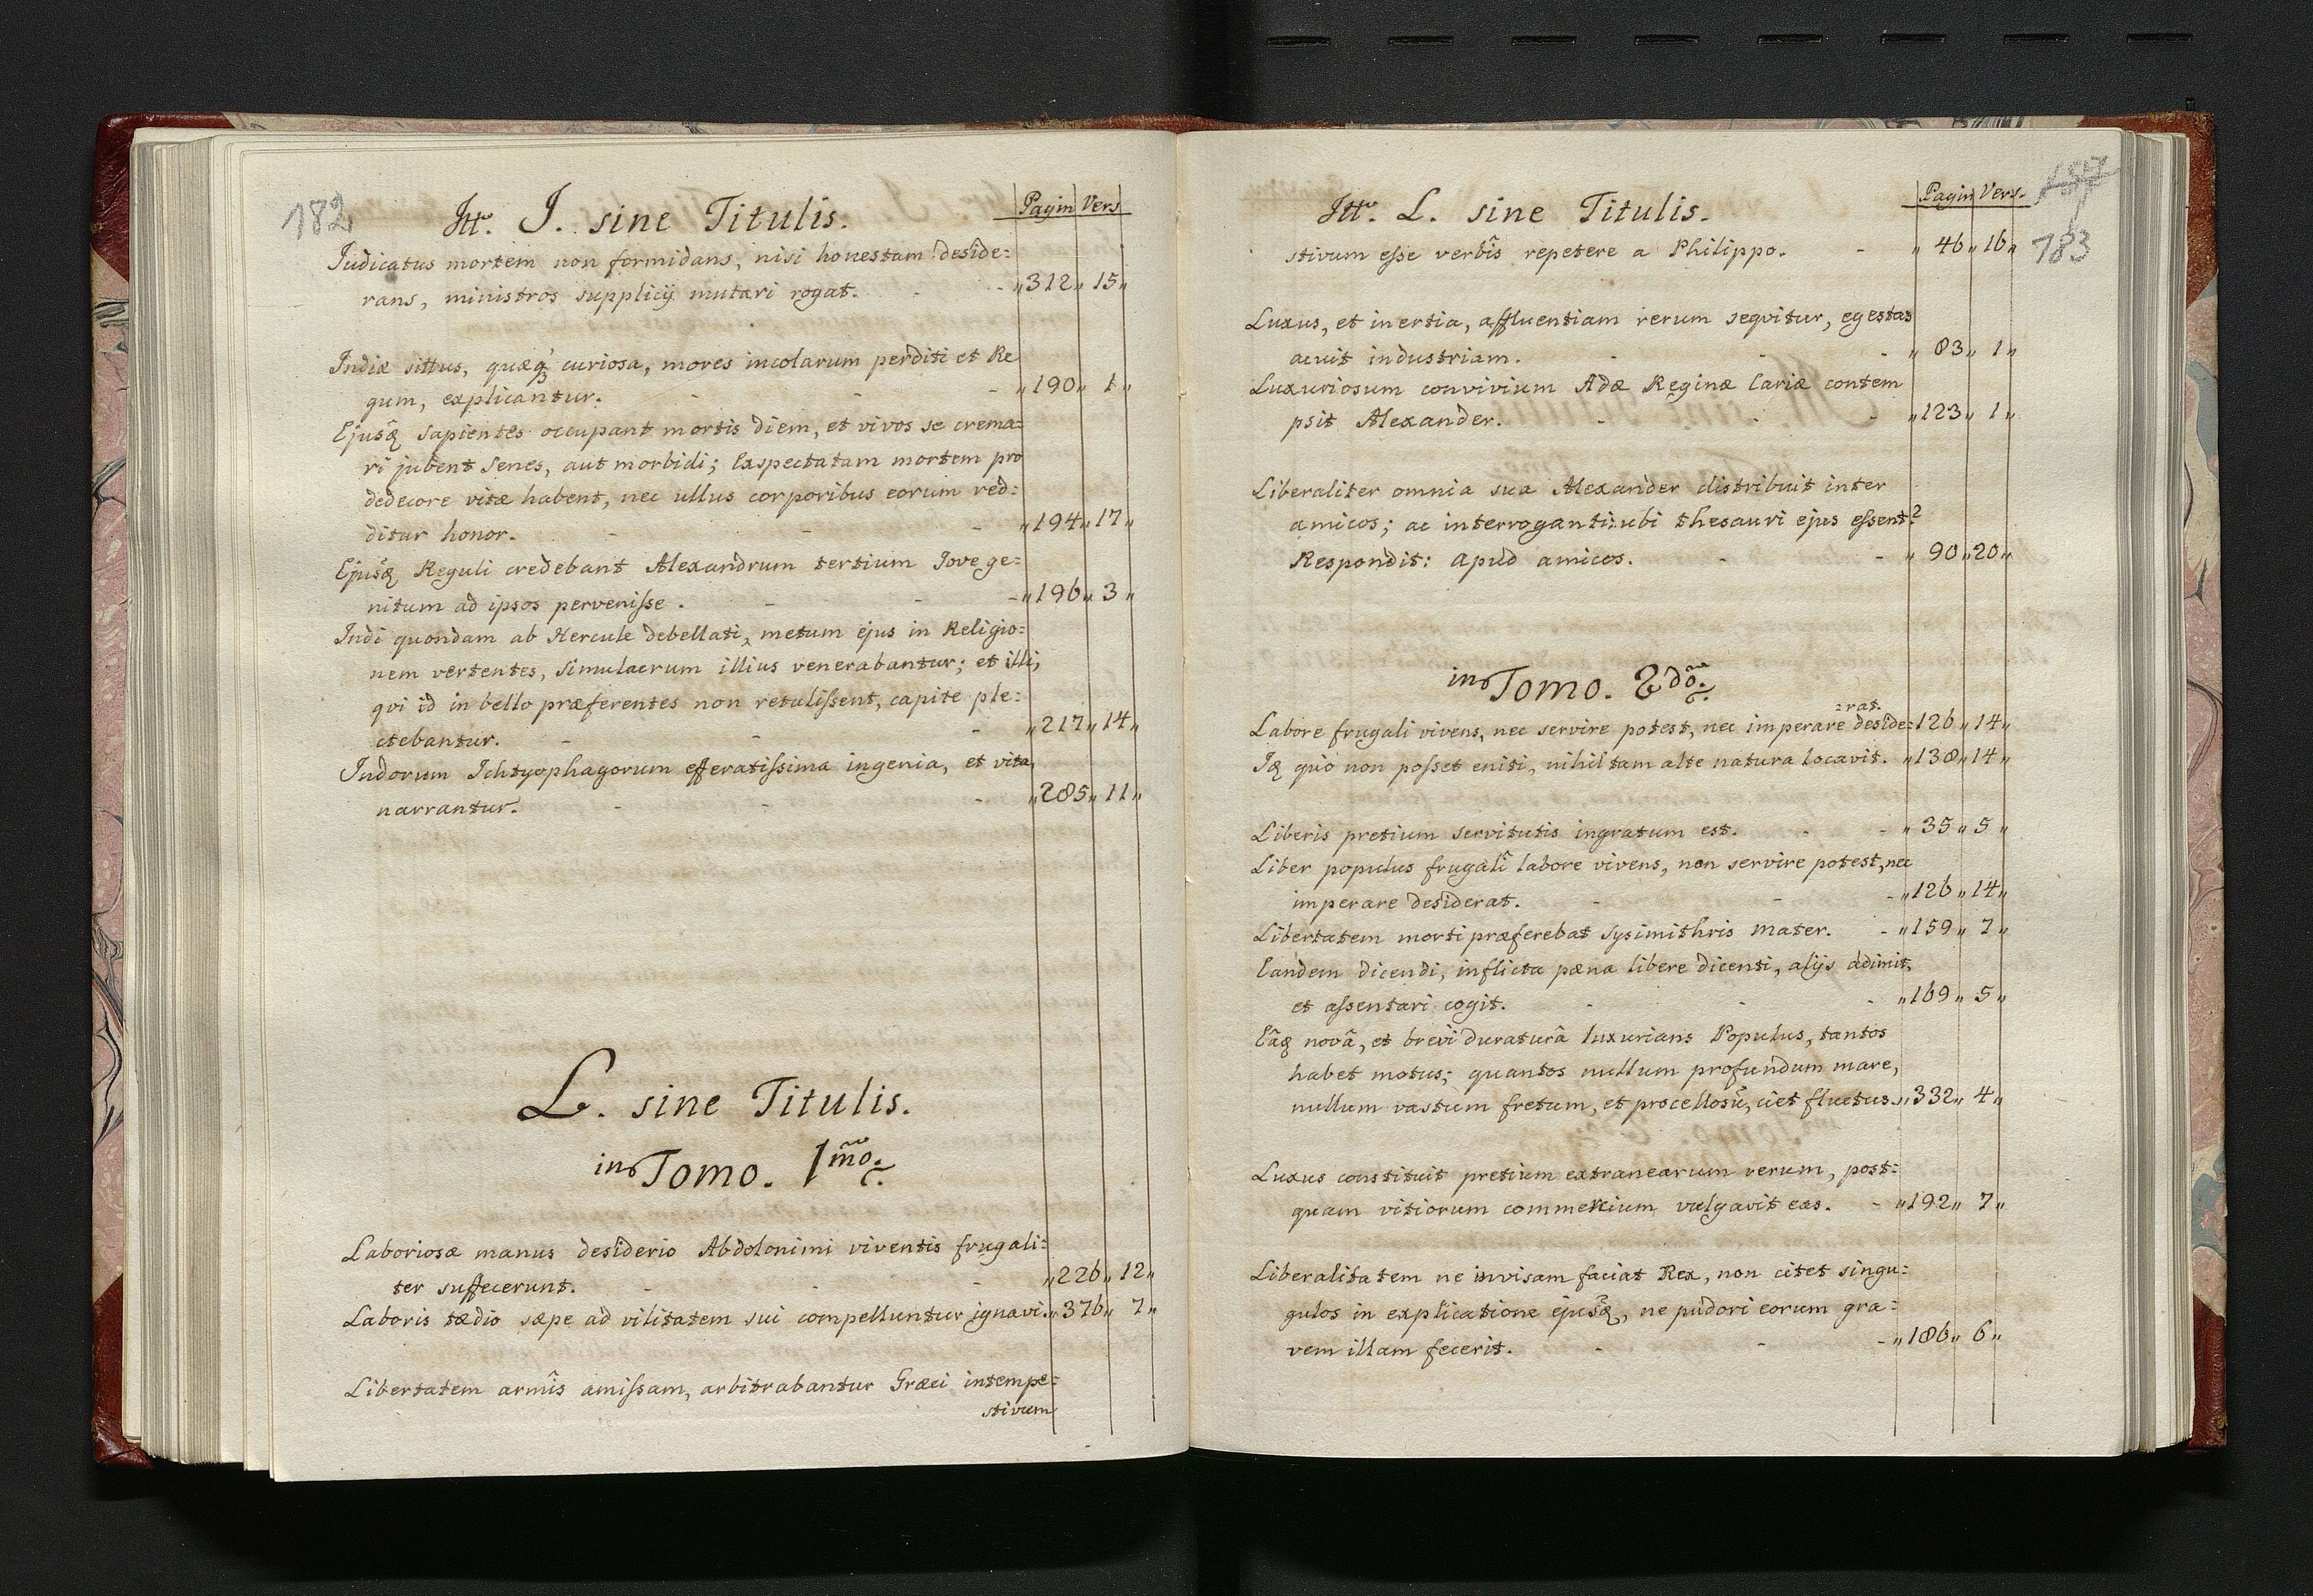 182
Itt. I. sine Titulis.
Pagin Vers
Iudicatus mortem non formidans, nisi honestam deside=
rans, ministros supplicij mutari rogat. - - „312„ 15„
Indiæ sittus, quæq3 curiosa, mores incolarum perditi et Re
gum, explicantur. - - - „190„ 1„
Ejusq3 Sapientes occupant mortis diem, et vivos se crema=
ri jubent Senes, aut morbidi; Exspectatam mortem pro
dedecore vitæ habent, nec ullus corporibus eorum red=
ditur honor. - - - „194„ 17„
Ejusq3 Reguli credebant Alexandrum tertium Jove ge=
nitum ad ipsos pervenisse. - - - „196„ 3„
Indi quondam ab Hercule debellati, metum ejus in Religio=
nem vertentes, simulacrum illius venerabantur; et illi,
qvi id in bello præferentes non retulissent, capite ple=
ctebantur. - - - „217„ 14„
Indorum Ichtyophagorum efferatissima ingenia, et vita,
narrantur. - - - „285„ 11„
L. sine Titulis.
in Tomo. 1mo.
Laboriosæ manus desiderio Abdolonimi viventis frugali=
ter suffecerunt. - - - „226„ 12„
Laboris tædio sæpe ad vilitatem sui compelluntur ignavi. „376„ 7„
Libertatem armîs amissam, arbitrabantur Græci intempe=
stivum
187
183
Itt. L. sine Titulis.
Pagin Vers.
stivum esse verbîs repetere a Philippo. - „ 46„ 16„
Luxus, et inertia, affluentiam rerum seqvitur, egestas
acuit industriam. - - - „ 83„ 1„
Luxuriosum convivium Adæ Reginæ Cariæ contem
psit Alexander. - - - „123„ 1„
Liberaliter omnia sua Alexander distribuit inter
amicos; ac interroganti: ubi thesauri ejus essent?
Respondit: apud amicos. - - „ 90„ 20„
in Tomo. 2do.
=rat.
Labore frugali vivens, nec servire potest, nec imperare deside= 126„ 14„
Iq3 quo non posset eniti, nihil tam alte natura locavit. „138„ 14„
Liberis pretium servitutis ingratum est. - - „ 35„ 5„
Liber populus frugalî labore vivens, non servire potest, nec
imperare desiderat. - - - „126„ 14„
Libertatem morti præferebat Sysimithris Mater. - „159„ 7„
Eandem dicendi, inflicta pæna libere dicenti, alijs adimit,
et assentari cogit. - - - „169„ 5„
Eâq3 novâ, et brevî duraturâ luxurians Populus, tantos
habet motus; quantos nullum profundum mare,
nullum vastum fretum, et procellosũ, ciet fluctus. „332„ 4„
Luxus constituit pretium extranearum rerum, post=
quam vitiorum commercium vulgavit eas. - „192„ 7„
Liberalitatem ne invisam faciat Rex, non citet singu=
gulos in explicatione ejusq3, ne pudori eorum gra=
vem illam fecerit. - - - „186„ 6„